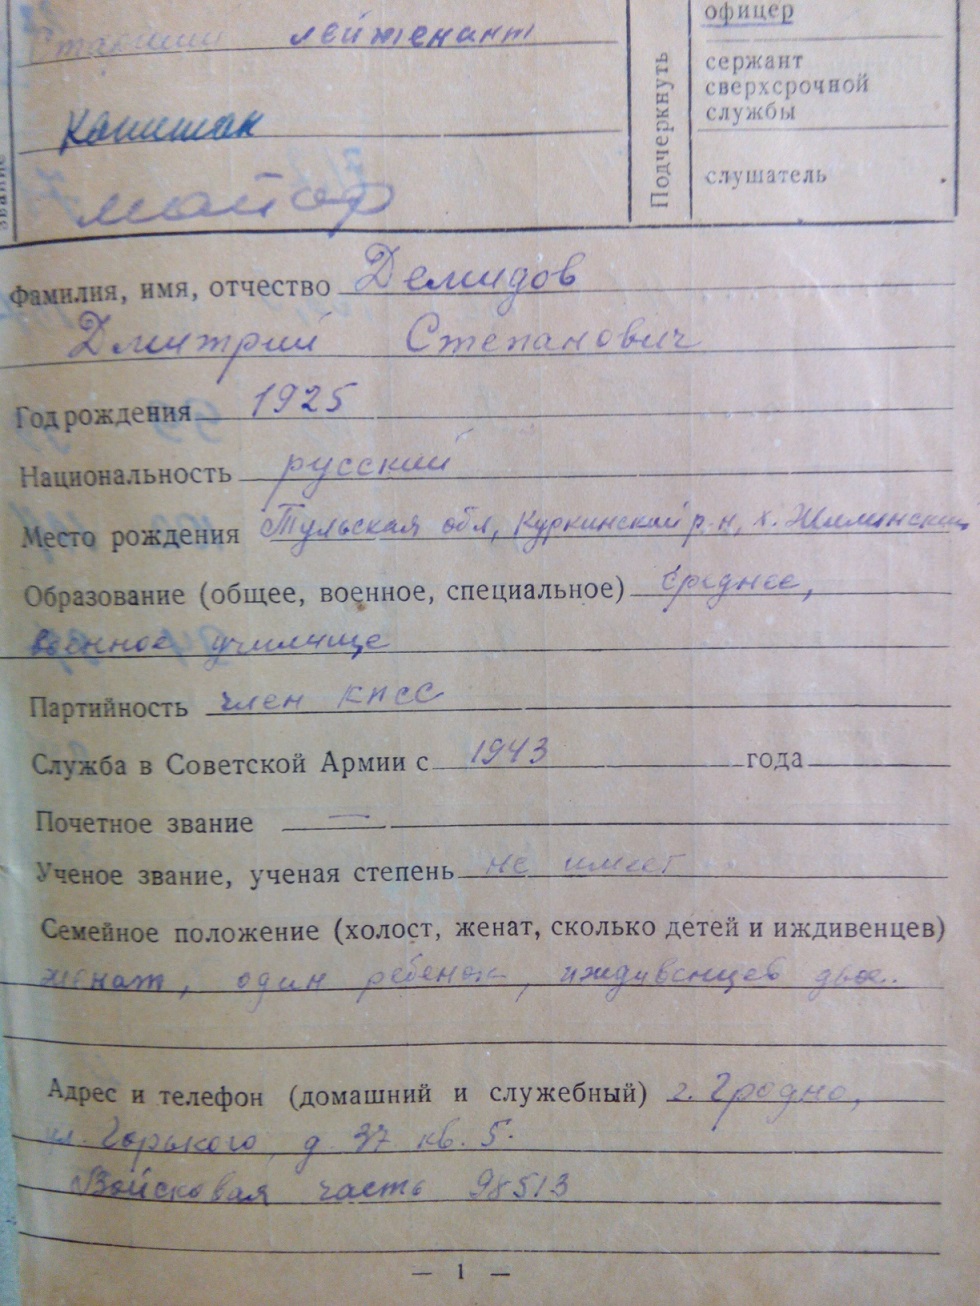 Старший лейтенант
офицер
сержант
сверхсрочной
службы
Капитан
Подчеркнуть
слушатель
звание
майор
Фамилия, имя, отчество Демидов
Дмитрий Степанович
Год рождения 1925
Национальность русский
Место рождения Тульская обл, Куркинский р-н, х.
Образование (общее, военное, специальное) среднее,
военное училище
Партийность член КПСС
Служба в Советской Армии с 1943 года
Почетное звание —
Ученое звание, ученая степень не имеет
Семейное положение (холост, женат, сколько детей и иждивенцев)
женат, один ребенок, иждивенцев двое.
Адрес и телефон (домашний и служебный) г. Гродно,
ул. Горького д. 37 кв. 5.
Войсковая часть 98513
— 1 —